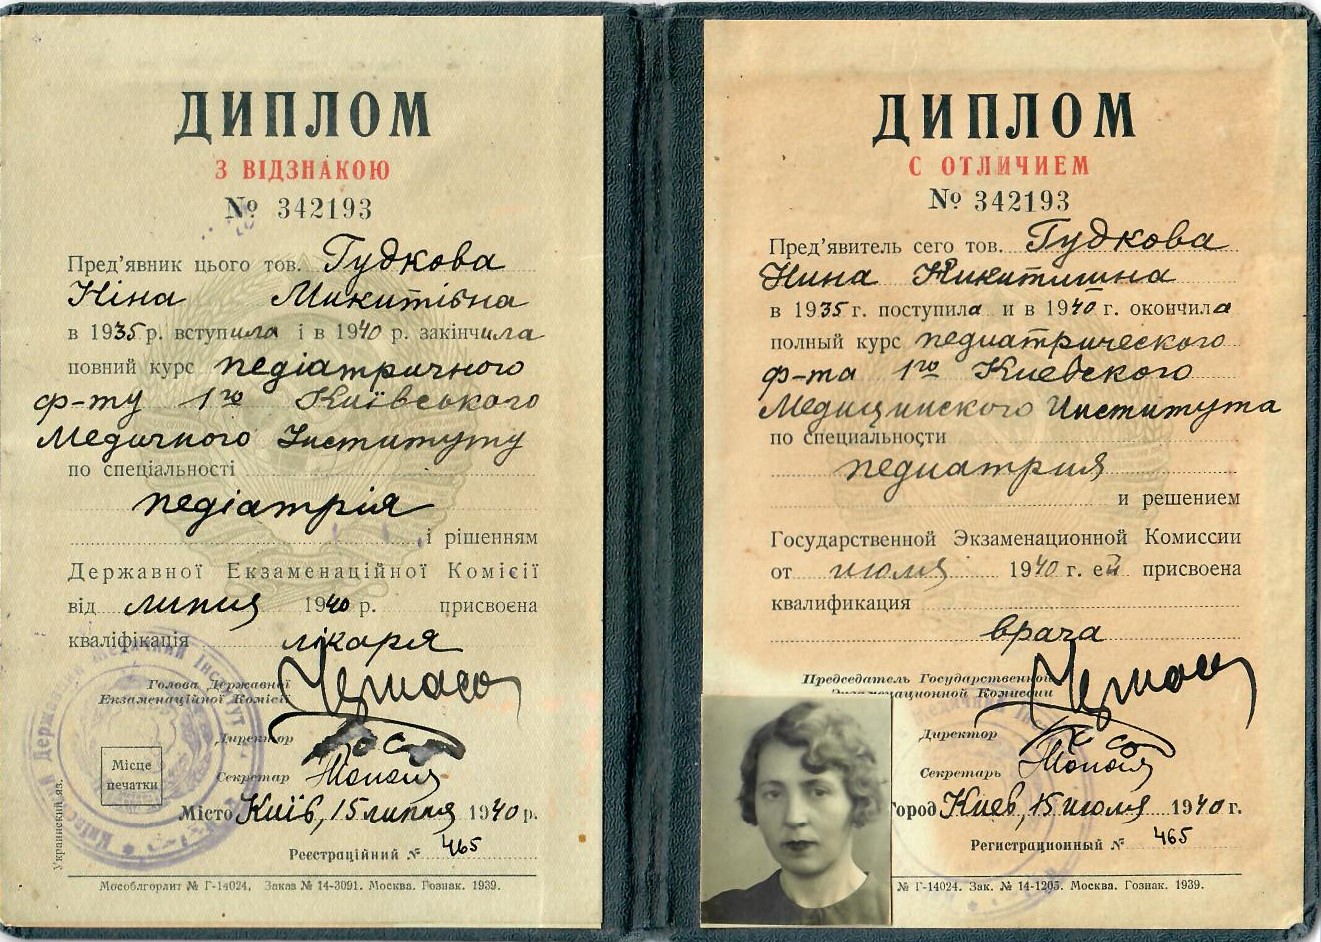 ДИПЛОМ
З ВІДЗНАКОЮ
№ 342193
Пред'явник цього тов. Гудкова
Ніна Микитівна
в 1935 р. вступила і в 1940 р. закінчила
повний курс педіатричного
ф-ту 1го Київського
Медичного Інституту
по спеціальності
педіатрія
і рішенням
Державної Екзаменаційної Комісії
від липня 1940 р. присвоєна
кваліфікація лікаря
Голова Державної
Екзаменаційної Комісії
Директор
Секретар
Місце
печатки
Місто Київ, 15 липня 1940 р.
Реєстраційний № 465
Украинский яз.
Мособлгорлит № Г-14024, Заказ № 14-3091. Москва. Гознак. 1939.
ДИПЛОМ
С ОТЛИЧИЕМ
№ 342193
Пред'явитель сего тов. Гудкова
Нина Никитична
в 1935 г. поступила и в 1940 г. окончила
полный курс педиатрического
ф-та 1го Киевского
Медицинского Института
по специальности
педиатрия
и решением
Государственной Экзаменационной Комиссии
от июля 1940 г. ей присвоена
квалификация
врача
Председатель Государственной
Экзаменационной Комиссии
Директор
Секретарь
Город Киев, 15 июля 1940 г.
Регистрационный № 465
№ Г-14024. Зак. № 14-1205. Москва. Гознак. 1939.